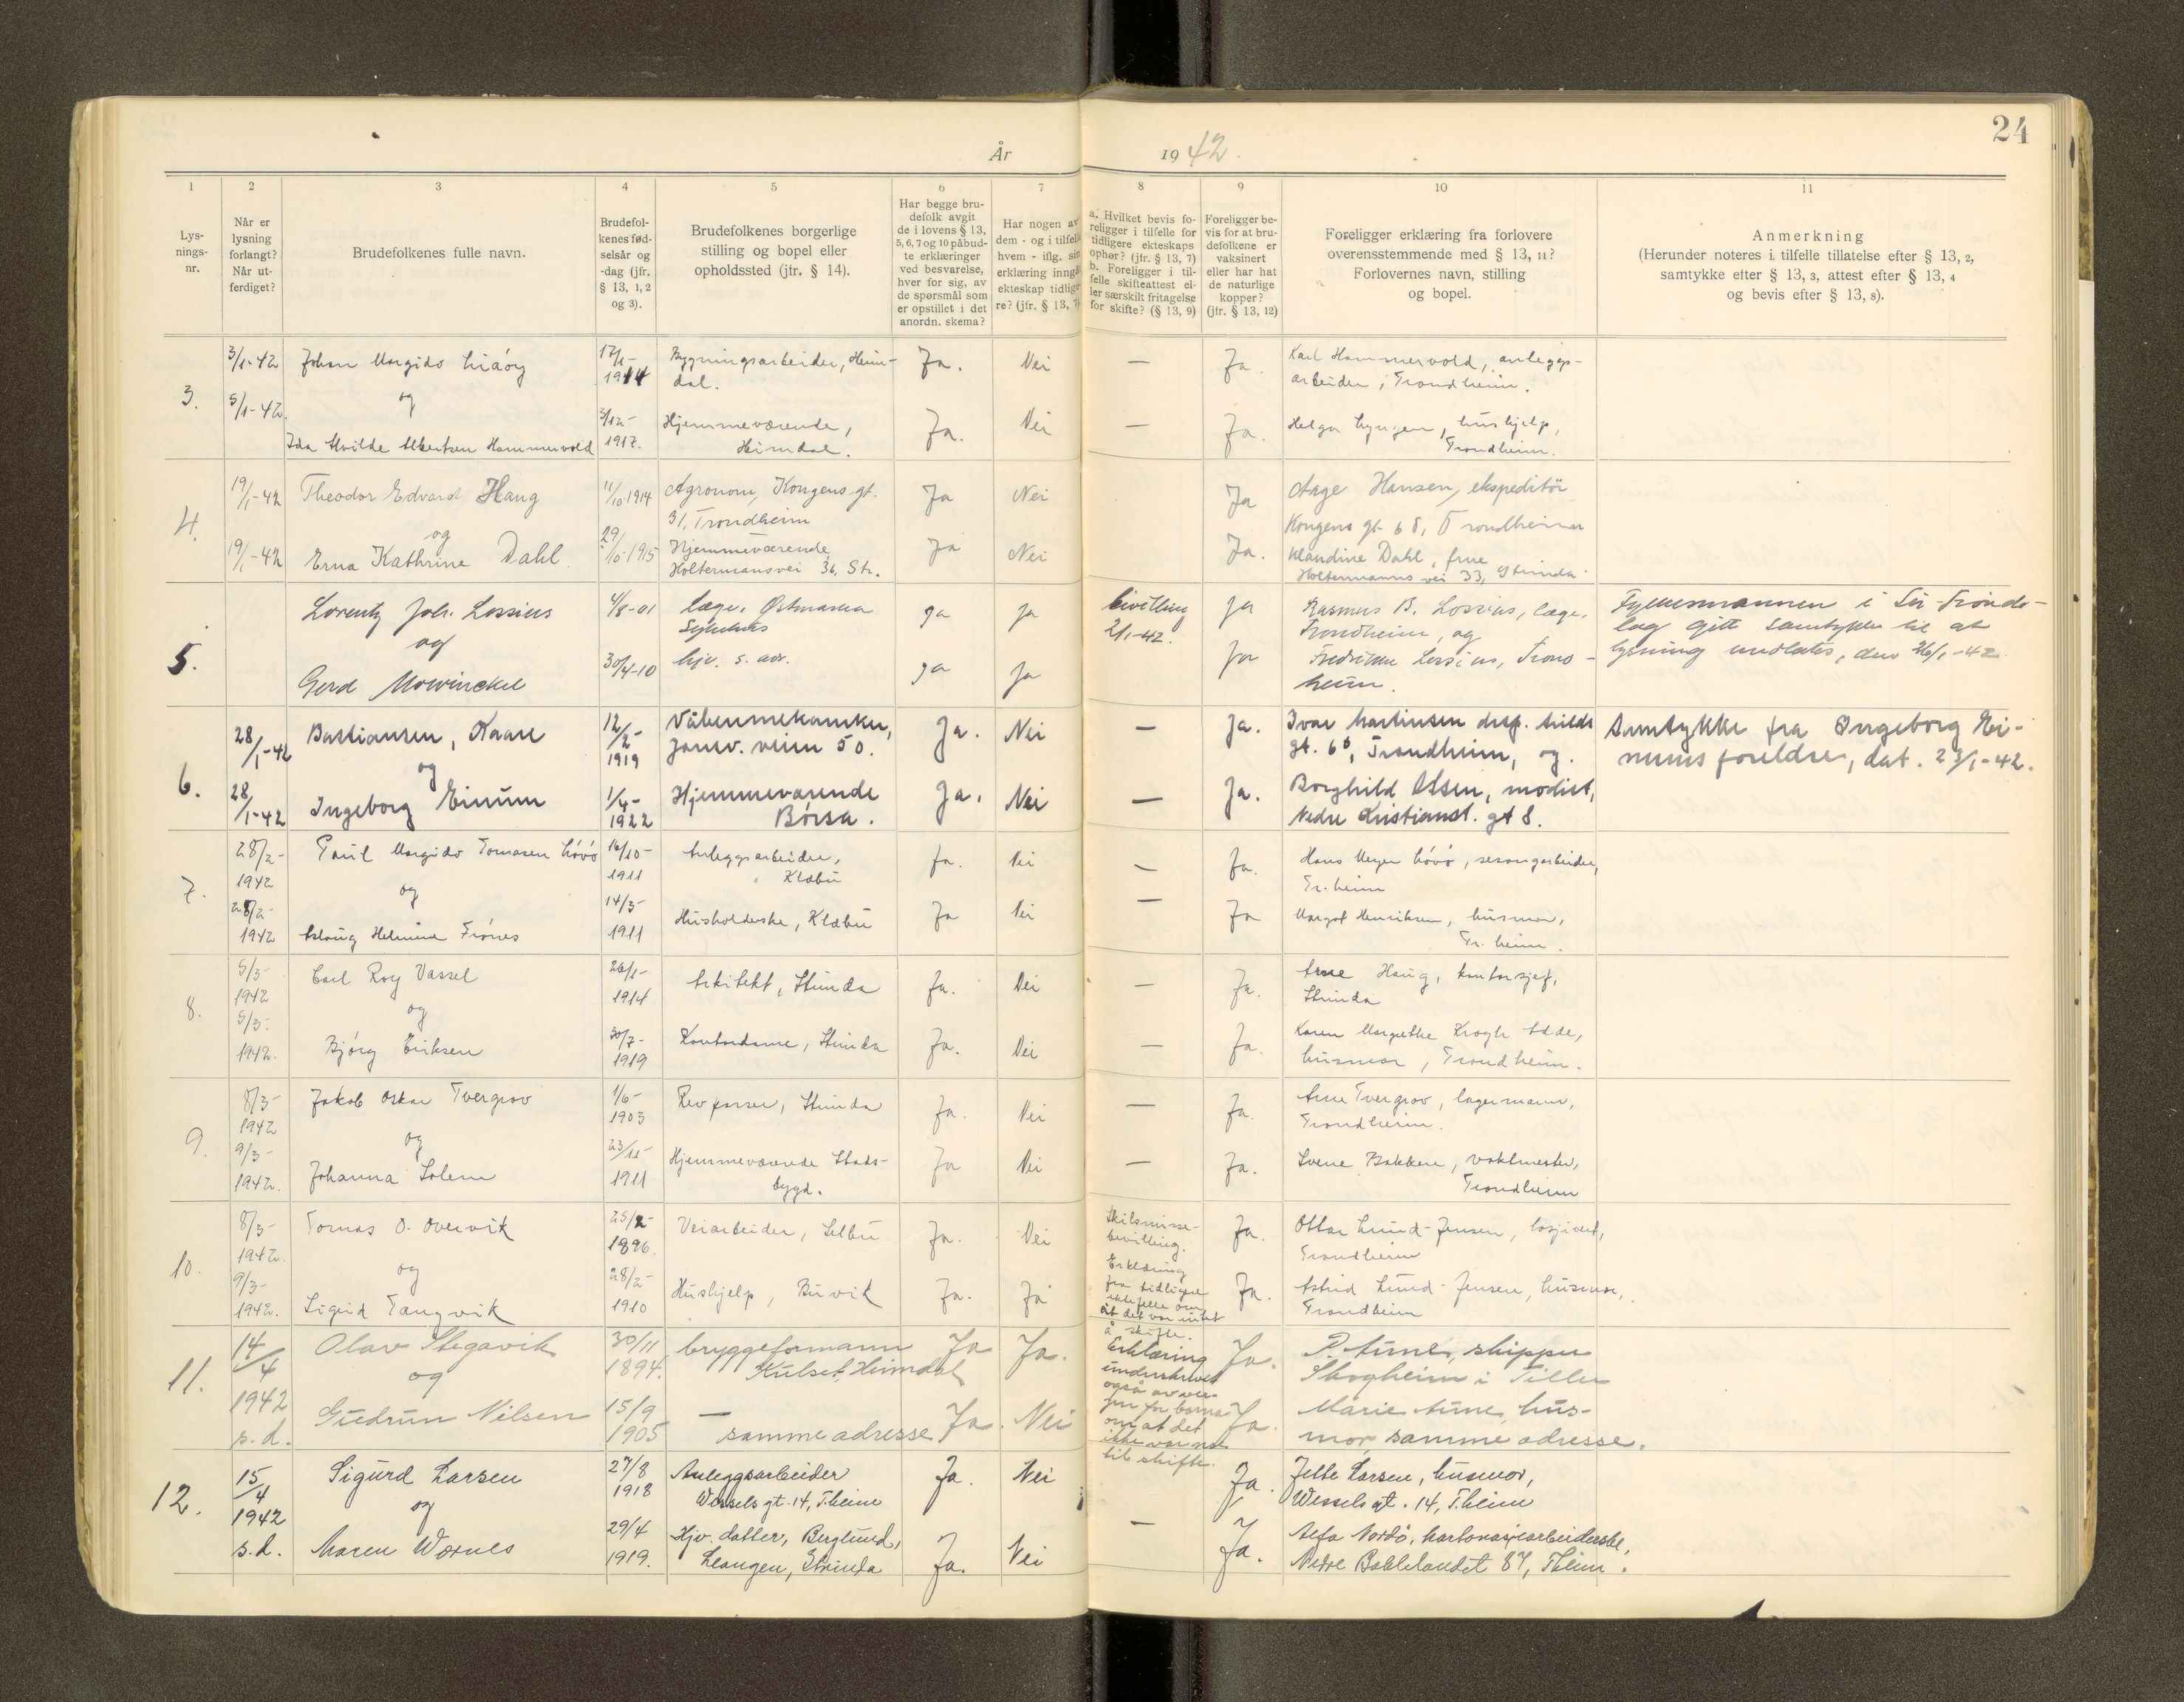 24
År 1942.
1 2 3 4 5 6 7 8 9 10 11
Lys-
nings-
nr.
Når er
lysning
forlangt?
Når ut-
ferdiget?
Brudefolkenes fulle navn.
Brudefol-
kenes fød-
selsår og
-dag (jfr.
§ 13, 1, 2
og 3).
Brudefolkenes borgerlige
stilling og bopel eller
opholdssted (jfr. § 14).
Har begge bru-
defolk avgit
de i lovens § 13,
5, 6, 7 og 10 påbud-
te erklæringer
ved besvarelse,
hver for sig, av
de spørsmål som
er opstillet i det
anordn. skema?
Har nogen av
dem - og i tilfelle
hvem - iflg. sin
erklæring inngå
ekteskap tidlige
re? (jfr. § 13, 7)
a. Hvilket bevis fo-
religger i tilfelle for
tidligere ekteskaps
ophør? (jfr. § 13, 7)
b. Foreligger i til-
felle skifteattest el-
ler særskilt fritagelse
for skifte? (§ 13, 9)
Foreligger be-
vis for at bru-
defolkene er
vaksinert
eller har hat
de naturlige
kopper?
(jfr. § 13, 12)
Foreligger erklæring fra forlovere
overensstemmende med § 13, 11?
Forlovernes navn, stilling
og bopel.
Anmerkning
(Herunder noteres i tilfelle tillatelse efter § 13, 2,
samtykke efter § 13, 3, attest efter § 13, 4
og bevis efter § 13, 8).
3.
3/1-42
5/1-42.
Johan Margido Liáøy
og
Ida Alvilde Albertsen Hammervold
17/1-
1914
3/12-
1917.
Bygningsarbeider, Heim-
dal.
Hjemmeværende,
Heimdal.
Ja. Nei — Ja.
Ja. Nei — Ja.
Karl Hammervold, anleggs-
arbeider, Trondheim.
Helga Lyngen, hushjelp,
Trondheim.
4.
19/1-42
19/1-42
Theodor Edvard Haug
og
Erna Kathrine Dahl.
11/10-1914
29/10-1915
Agronom, Kongens gt.
31, Trondheim
Hjemmeværende
Holtermansvei 36, Str.
Ja Nei Ja
Ja Nei Ja.
Aage Hansen, ekspeditör
Kongens gt. 68, Trondheim
Klaudine Dahl, frue
Holtermanns vei 33, Strinda
5.
Lorentz Joh. Lossius
og
Gerd Mowinckel
4/8-01
30/4-10
læge, Østmarka
Sykehus
hjv. s. adr.
ja ja
ja ja
bevilling
21/1-42.
ja
ja
Rasmus B. Lossius, læge,
Trondheim, og
Fredrikke Lossius, Trond-
heim.
Fylkesmannen i Sör-Trönde-
lag gitt samtykke til at
lysning undlates, den 26/1-42
6.
28/1-42
28/1-42
Bastiansen, Kaare
og
Ingeborg Einum
12/2-
1919
1/4-
1922
Våbenmekaniker,
Jonsv. veien 50.
Hjemmeværende
Börsa.
Ja. Nei — Ja.
Ja. Nei — Ja.
Ivar Martinsen disp. Gilde
gt. 6b, Trondheim, og.
Borghild Olsen, modist,
Nedre Kristianst. gt 8.
Samtykke fra Ingeborg Ei-
nums foreldre, dat. 23/1-42.
7.
28/2-
1942
28/2-
1942
Paul Margido Tomasen Lóvó
og
Aslaug Helmine Frónes
16/10-
1911
14/3-
1911
Anleggsarbeider,
Klæbu
Husholderske, Klæbu
Ja. Nei — Ja.
Ja Nei — Ja
Hans Meyer Lóvó, sesongarbeider,
Tr.heim
Margot Henriksen, husmor,
Tr.heim.
8.
5/3-
1942
5/3-
1942.
Carl Roy Vassel
og
Bjórg Eriksen
26/1-
1914
30/7-
1919
Arkitekt, Strinda
Kontordame, Strinda
Ja. Nei — Ja.
Ja. Nei — Ja.
Arne Haug, kontorsjef,
Strinda
Karen Margrethe Krogh Udde,
husmor, Trondheim.
9.
8/3-
1942
9/3-
1942.
Jakob Oskar Tvergrov
og
Johanna Solem
1/6-
1903
23/12-
1911
Revpasser, Strinda
Hjemmeværende Stads-
bygd.
Ja. Nei — Ja.
Ja Nei — Ja.
Arne Tvergrov, lagermann,
Trondheim.
Sverre Bakken, vaktmester,
Trondheim
10.
8/3-
1942.
9/3-
1942.
Tomas O. Overvik
og
Sigrid Tangvik
25/2-
1896.
28/2-
1910
Veiarbeider, Selbu
Hushjelp, Buvik
Ja. Nei
Ja. Ja
Skilsmisse-
bevilling.
Erklæring
fra tidligere
ektefelle om
at det var intet
å skifte.
Ja.
Ja.
Ottar Lund-Jensen, losjivert,
Trondheim
Astrid Lund-Jensen, husmor,
Trondheim
11.
14/4
1942
s.d.
Olav Stegavik
og
Gudrun Nilsen
30/11
1894.
15/9
1905
bryggeformann
Kulset, Heimdal
—
samme adresse
Ja Ja.
Ja. Nei
Erklæring
underskrevet
også av ver-
gen for barna
om at det
ikke var noe
til skifte.
Ja.
Ja.
P. Aune, skipper
Skogheim i Tiller
Marie Aune, hus-
mor, samme adresse.
12.
15/4
1942
s.d.
Sigurd Larsen
og
Maren Wornes
27/8
1918
29/4
1919.
Anleggsarbeider
Wessels gt. 14, T.heim
Hjv. datter, Berglund,
Leangen, Strinda
Ja. Nei Ja.
Ja. Nei — Ja.
Jette Larsen, husmor,
Wessels gt. 14, T.heim
Alfa Nordó, kartonasjearbeiderske,
Nedre Bakklandet 87, T.heim.